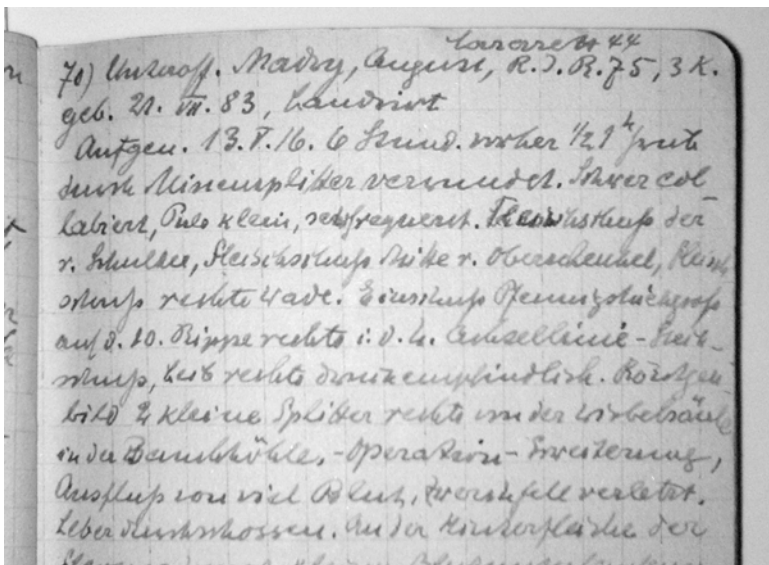 Lazarett 44
70) Unteroff. Madry, August, R.I.R. 75, 3 K.
geb. 21. VII. 83, Landwirt
Aufgen. 13. V. 16. 6 Stund. vorher ½ 1 h früh
durch Minensplitter verwundet. Schwer col-
labiert, Puls klein, sehr frequent. Fleischschuß der
r. Schulter, Fleischschuß Mitte r. Oberschenkel, Fleisch
schuß rechte Wade. Einschuß Pfennigstückgroß
auf d. 10. Rippe rechts i. d. h. Achsellinie - Steck-
schuß, Leib rechts druckempfindlich. Röntgen-
bild 2 kleine Splitter rechts von der Wirbelsäule
in der Bauchhöhle. - Operation - Erweiterung,
Ausfluß von viel Blut, Zwerchfell verletzt.
Leber durchschossen. An der Hinterfläche der